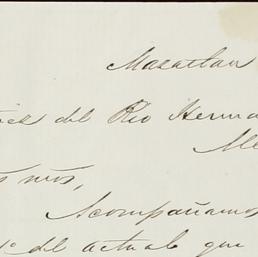 Mazatlan
del Rio Herma
Me
Acompañamos
del actual que